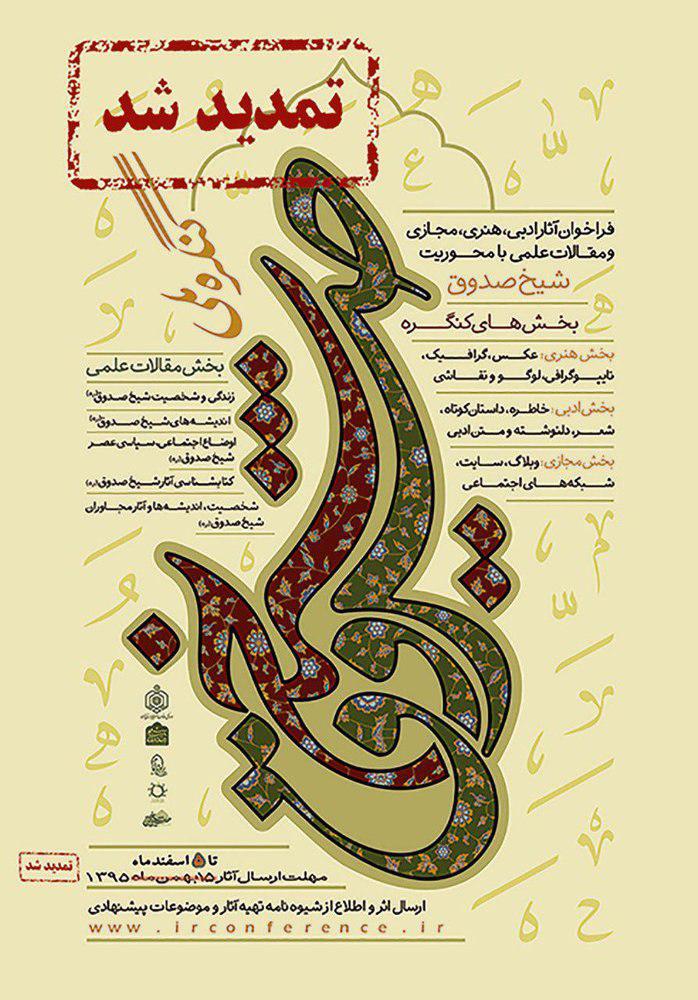 تمدید شد
کنگره ملی
شیخ صدوق
فراخوان آثار ادبی، هنری، مجازی
و مقالات علمی با محوریت
شیخ صدوق
بخش های کنگره
بخش هنری: عکس، گرافیک،
تایپوگرافی، لوگو و نقاشی
بخش ادبی: خاطره، داستان کوتاه،
شعر، دلنوشته و متن ادبی
بخش مجازی: وبلاگ، سایت،
شبکه های اجتماعی
بخش مقالات علمی
زندگی و شخصیت شیخ صدوق (ره)
اندیشه های شیخ صدوق (ره)
اوضاع اجتماعی، سیاسی عصر
شیخ صدوق (ره)
کتابشناسی آثار شیخ صدوق (ره)
شخصیت، اندیشه ها و آثار مجاوران
شیخ صدوق (ره)
تا ۵ اسفند ماه
مهلت ارسال آثار ۱۵ بهمن ماه ۱۳۹۵
تمدید شد
ارسال اثر و اطلاع از شیوه نامه تهیه آثار و موضوعات پیشنهادی
www.irconference.ir